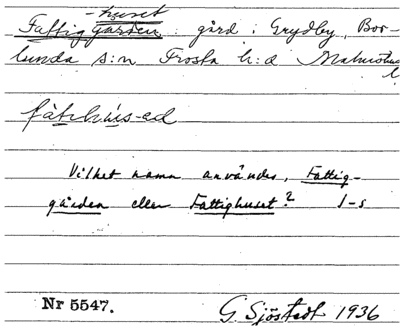 -huset
Fattiggården gård i Grydby, Bor-
lunda s:n Frosta h:d Malmöhus
l
fàtihús-ed
Vilket namn användes, Fattig-
gården eller Fattighuset? I-s
Nr 5547.
G Sjöstedt 1936